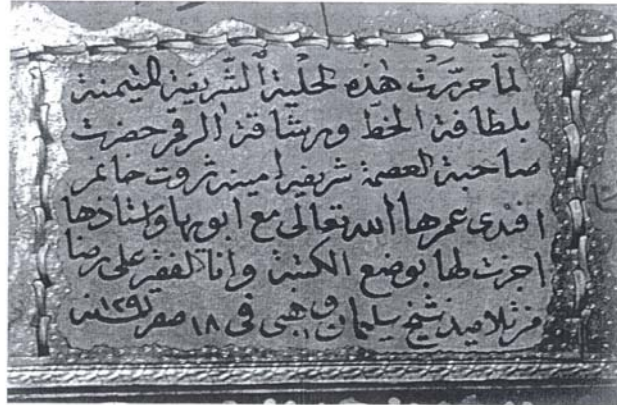 لمّا حرّرت هذه الحلية الشّريفة المتيمنة
بلطافة الخطّ ورشاقة الرقم حضرت
صاحبة العصمة شريفه امينه ثروت خانم
افندى عمرها الله تعالى مع ابويها واستاذها
اجزت لها بوضع الكتبة وانا الفقير على رضا
من تلاميذ شيخ سليمان وهبى فى ١٨ صفر سنه ١٢٩